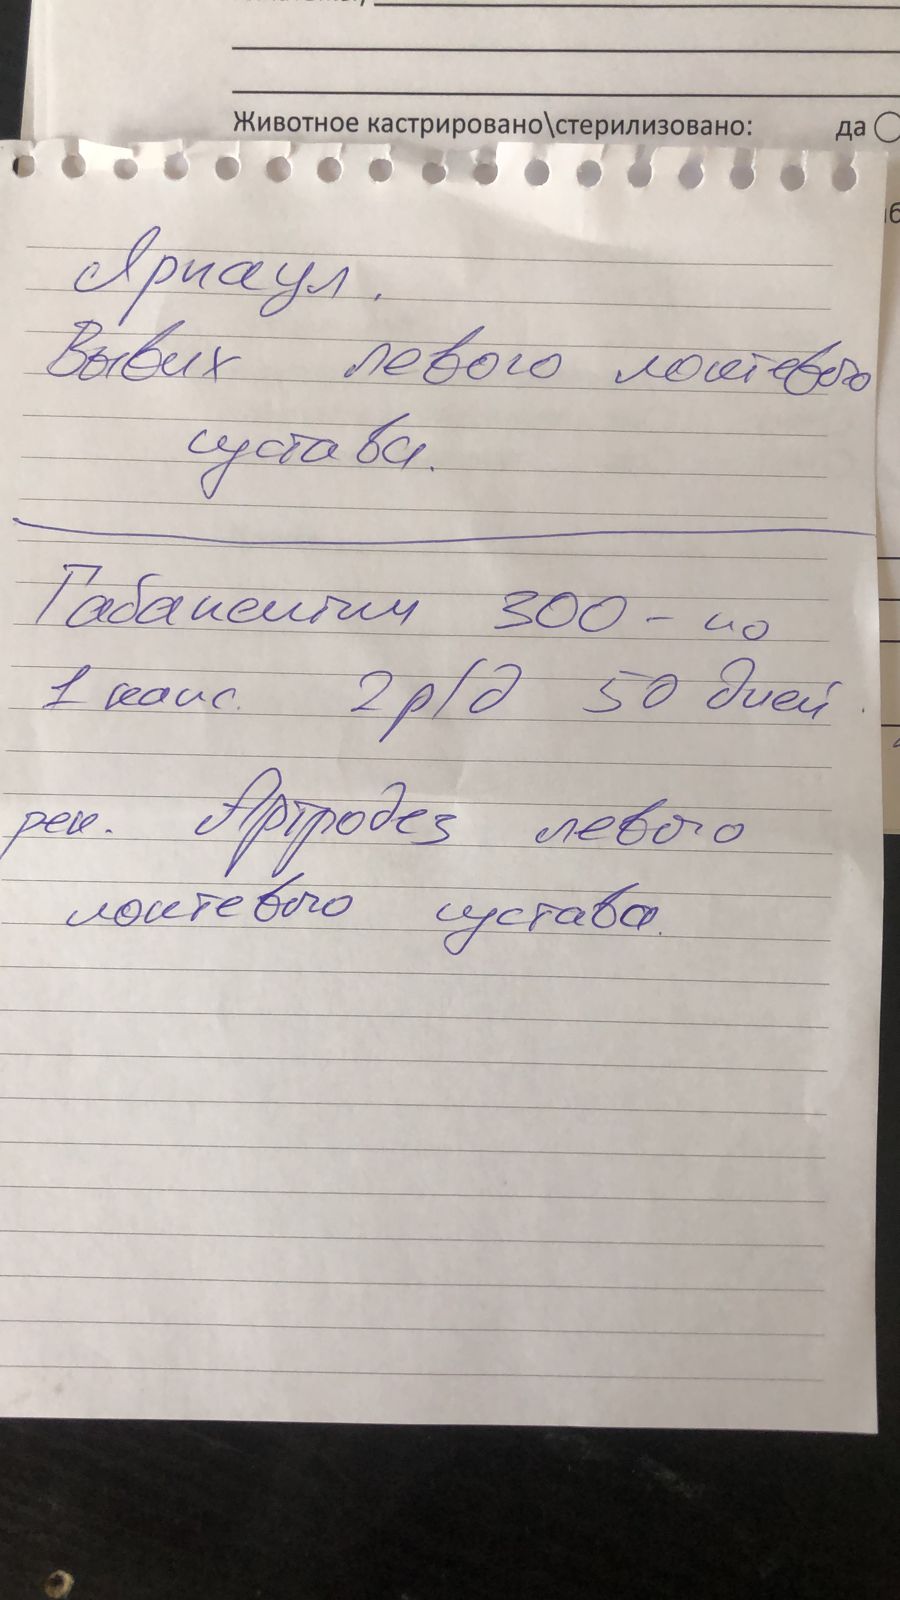 Животное кастрировано\стерилизовано: да
Арнаул.
Вывих левого локтевого
сустава.
Габапентин 300 - по
1 капс. 2 р/д 50 дней.
рек. Артродез левого
локтевого сустава.